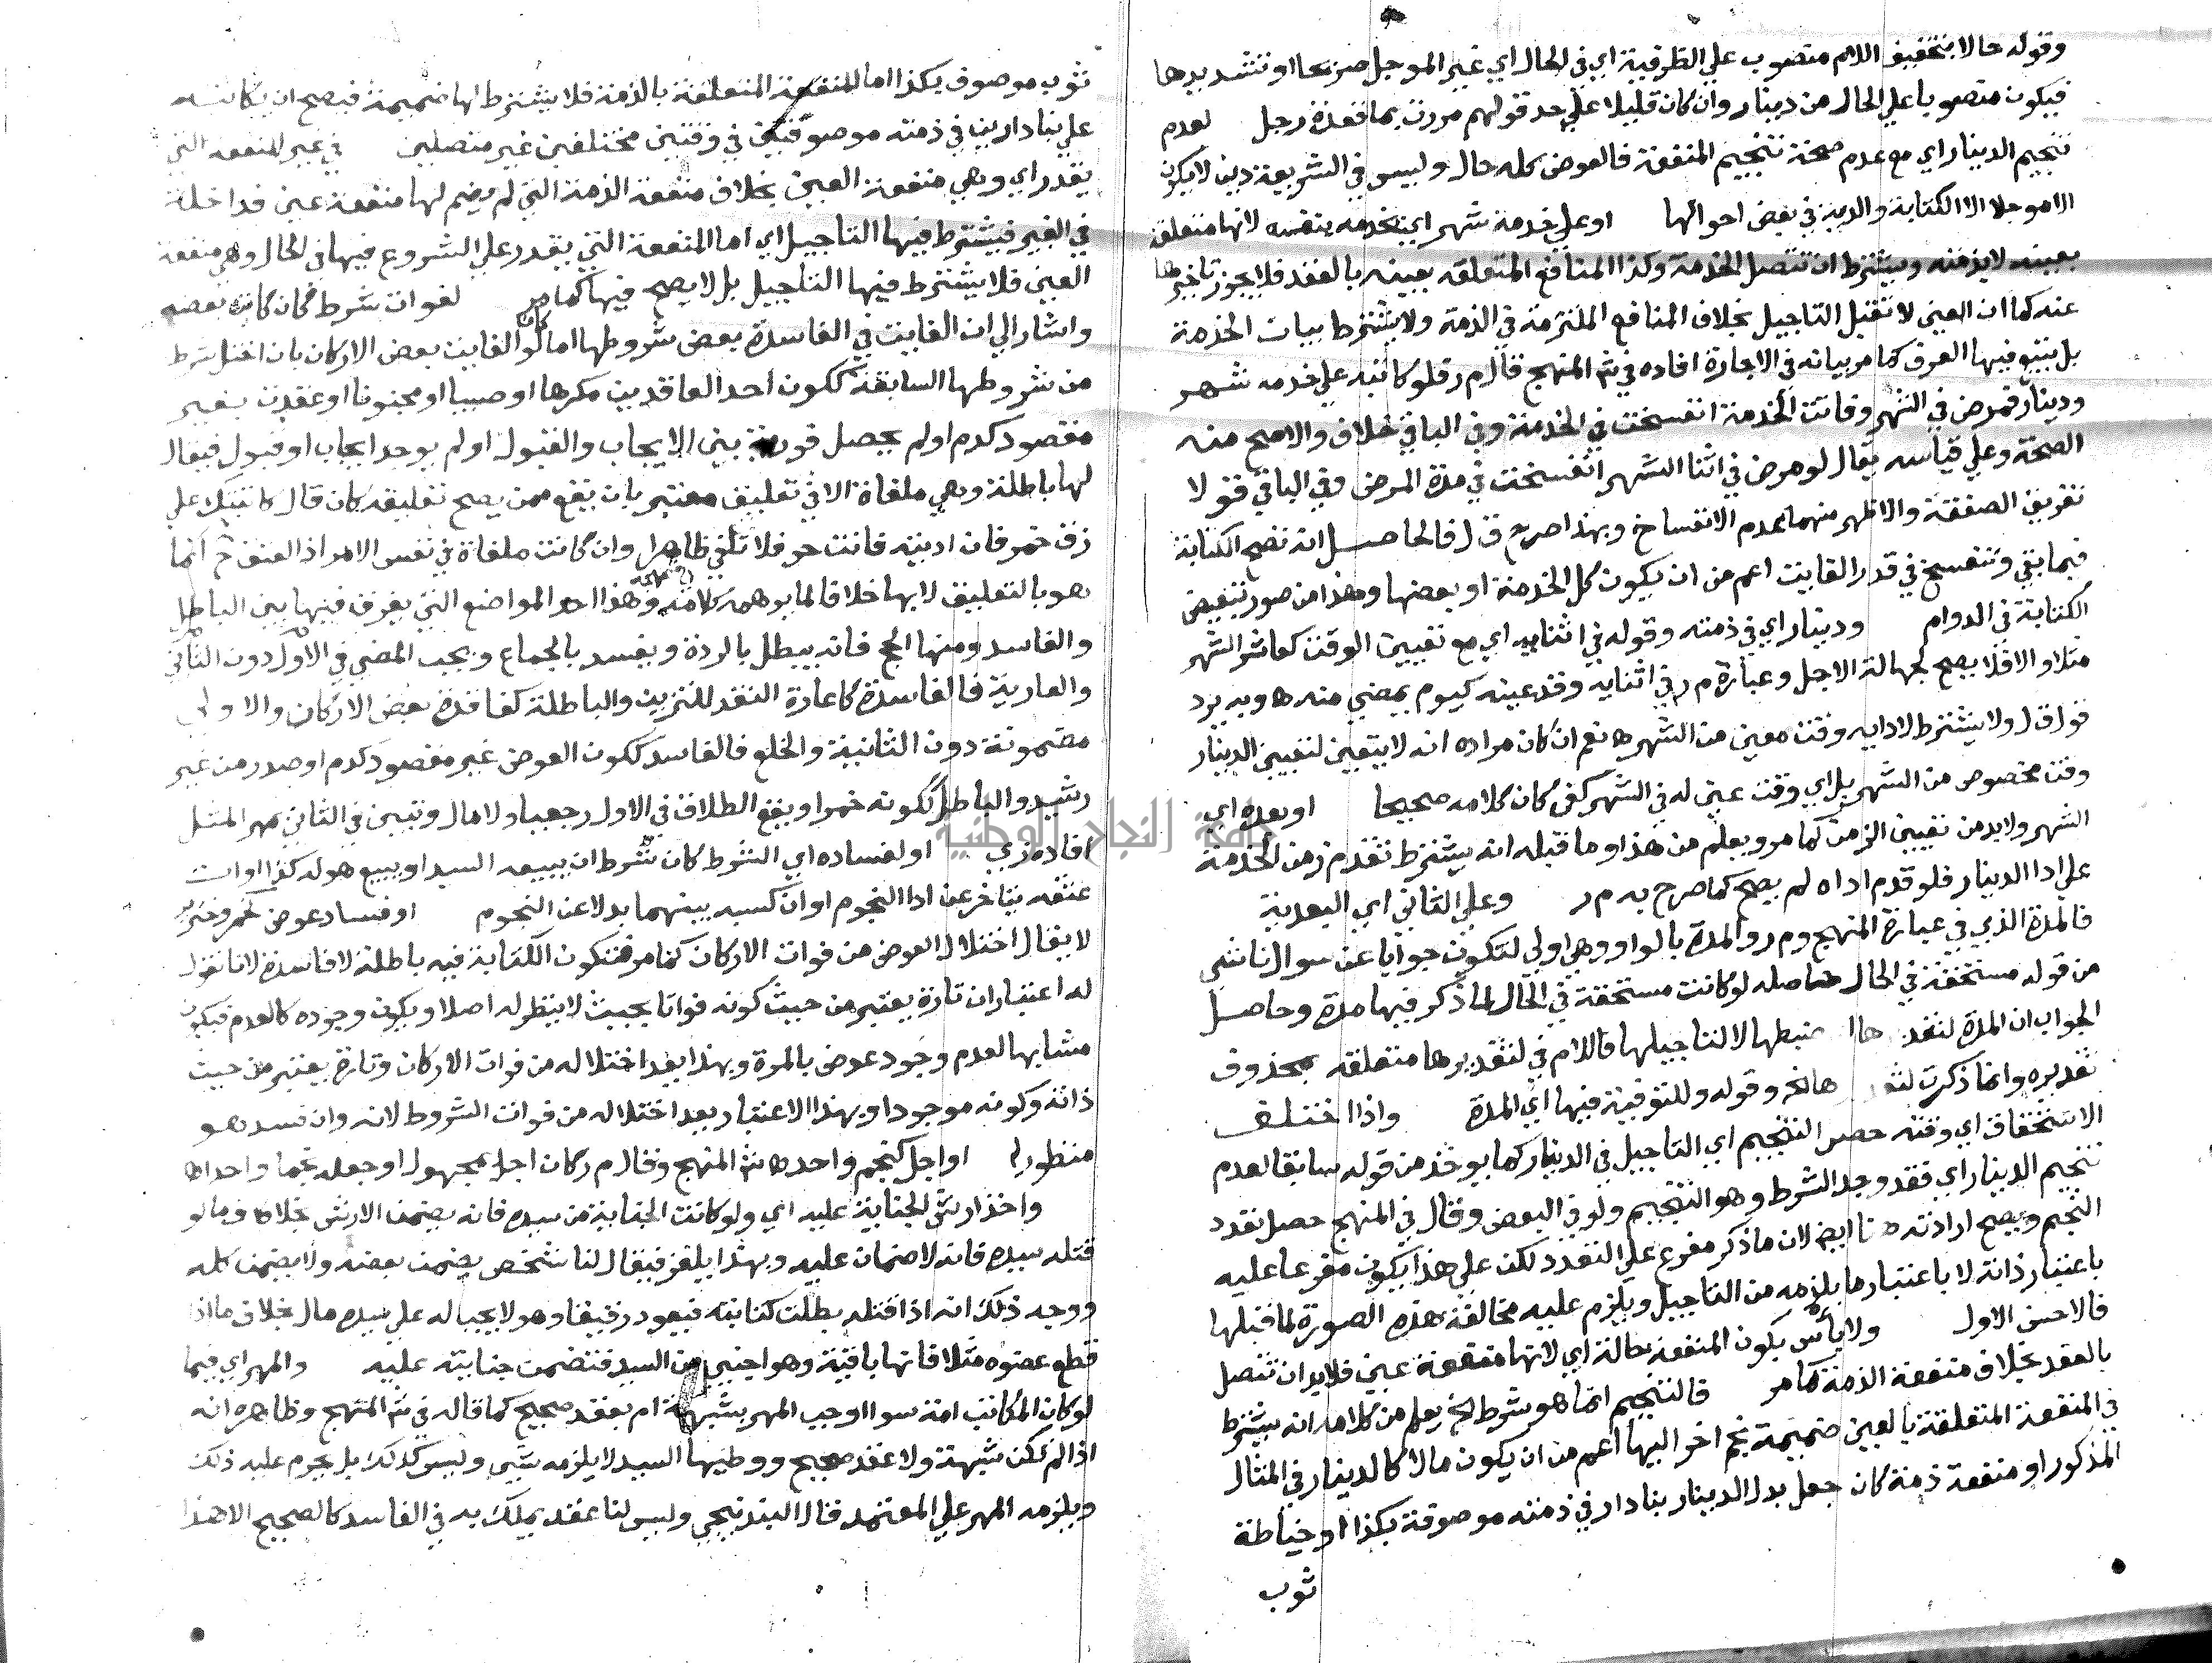 وقوله حالا بتخفيف اللام منصوب علي الظرفية اي في الحال اي غير الموجل صريحا او تشديدها
فيكون منصوبا علي الحال من دينار وان كان قليلا علي حد قولهم مررت بماء قعدة رجل لعدم
تنجيم الدينار اي مع عدم صحة تنجيم المنفعة فالعوض كله حال وليس في الشريعة دين لا يكون
الا موجلا الا الكتابة والدية في بعض احوالها او علي خدمة شهر اي بخدمه بنفسه لانها متعلقة
بعينه لا بذمته ويشترط ان تتصل الخدمة وكذا المنافع المتعلقه بعينه بالعقد فلا يجوز تاخيرها
عنه كما ان العين لا تقبل التاجيل بخلاف المنافع الملتزمة في الذمة ولا يشترط بيان الخدمة
بل يتبع فيها العرف كما مر بيانه في الاجارة افاده في شم المنهج قال م ر فلو كاتبه علي خدمه شهر
ودينار فمرض في الشهر وفاتت الخدمة انفسخت في الخدمة وفي الباقي خلاف والاصح منه
الصحة وعلي قياسه يقال لو مرض في اثنا الشهر انفسخت في مدة المرض وفي الباقي قولا
تفريق الصفقة والاظهر منهما عدم الانفساخ وبهذا صرح ق ل فالحاصل انه تصح الكتابة
فيما بقي وتنفسخ في قدر الفايت اعم من ان يكون كل الخدمة او بعضها وهذا من صور تبعيض
الكتابة في الدوام ودينار اي في ذمته وقوله في اثنايه اي مع تعيين الوقت كعاشر الشهر
مثلا والا فلا يصح لجهالة الاجل وعبارة م ر في اثنايه وقد عينه كيوم يمضي منه ه وبه يرد
قول ق ل ولا يشترط لادايه وقت معين من الشهر ه نعم ان كان مراده انه لا يتعين لتعيين الدينار
وقت مخصوص من الشهر بل اي وقت عين له في الشهر كفي كان كلامه صحيحا او بعده اي
الشهر ولا بد من تعيين الزمن كما مر ويعلم من هذا وما قبله انه يشترط تقدم زمن الخدمة
علي ادا الدينار فلو قدم اداه لم يصح كما صرح به م ر وعلي الثاني اي البعدية
فالمدة الذي في عبارة المنهج وم ر والمدة بالواو وهي اولي لتكون جوابا عن سوال ناشي
من قوله مستحقة في الحال حاصله لو كانت مستحقة في الحال لما ذكر فيها مدة وحاصل
الجواب ان المدة لتقديرها ضبطها لا لتاجيلها فاللام في لتقديرها متعلقه بمحذوف
تقديره وانما ذكرت لتقديرها الخ وقوله وللتوفية فيها اي المدة واذا اختلف
الاستحقاق اي وقته حصل التنجيم اي التاجيل في الدينار كما يوخذ من قوله سابقا لعدم
تنجيم الدينار اي فقد وجد الشرط وهو التنجيم ولو في البعض وقال في المنهج حصل تعدد
النجم ويصح ارادته هنا ايضا لان ما ذكر مفرع علي التعدد لكن علي هذا يكون مفرعا عليه
باعتبار ذاته لا باعتبار ما يلزمه من التاجيل ويلزم عليه مخالفة هذه الصورة لما قبلها
فالاحسن الاول ولا باس بكون المنفعة حالة اي لانها منفعة عين فلا بد ان تتصل
بالعقد بخلاف منفعة الذمة كما مر فالتنجيم انما هو شرط الخ يعلم من كلامه انه يشترط
في المنفعة المتعلقة بالعين ضميمة نجم اخر اليها اعم من ان يكون مالا كالدينار في المثال
المذكور او منفعة ذمة كان جعل بدل الدينار بنا دار في ذمته موصوفة بكذا او خياطة
ثوب
ثوب موصوف بكذا اما المنفعة المتعلقة بالذمة فلا يشترط لها ضميمة فيصح ان يكاتبه
علي بنا دارين في ذمته موصوفتين في وقتين مختلفين غير متصلين في غير المنفعه التي
يقدر اي وهي منفعة العين بخلاف منفعة الذمة التي لم يضم لها منفعة عين فداخلة
في الغير فيشترط فيها التاجيل اي اما المنفعة التي يقدر علي الشروع فيها في الحال وهي منفعة
العين فلا يشترط فيها التاجيل بل لا يصح فيها كما مر لفوات شرط كان كاتب بعضه
واشار الي ان الفايت في الفاسدة بعض شروطها اما لو كان الفايت بعض الاركان بان اختل شرط
من شروطها السابقة ككون احد العاقدين مكرها او صبيا او مجنونا او عقدت بغير
مقصود كدم او لم يحصل فورية بين الايجاب والقبول او لم يوجد ايجاب او قبول فيقال
لها باطلة وهي ملغاة الا في تعليق معتبر بان يقع ممن يصح تعليقه كان قال كاتبتك علي
زق خمر فان اديته فانت حر فلا تلغي ظاهرا وان كانت ملغاة في نفس الامر اذ العتق ح انما
هو بالتعليق لا بها خلافا لما يوهمه كلامه وهذا احد المواضع التي يفرق فيها بين الباطل
والفاسد ومنها الحج فانه يبطل بالردة ويفسد بالجماع ويجب المضي في الاول دون الثاني
والعارية فالفاسدة كاعارة النقد للتزيين والباطلة كفاقدة بعض الاركان والاولي
مضمونة دون الثانية والخلع فالفاسد ككون العوض غير مقصود كدم او صدر من غير
رشيد والباطل ككونه خمرا ويقع الطلاق في الاول رجعيا ولا مال وتبين في الثاني بمهر المثل
افاده زي او لفساده اي الشرط كان شرط ان يبيعه السيد او يبيع هو له كذا او ان
عتقه يتاخر عن ادا النجوم او ان كسبه بينهما بدلا عن النجوم او فساد عوض كخمر وخنزير
لا يقال اختلال العوض من فوات الاركان كما مر فتكون الكتابة فيه باطلة لا فاسدة لانا نقول
له اعتباران تارة يعتبر من حيث كونه فواتا بحيث لا ينظر له اصلا ويكون وجوده كالعدم فيكون
مشابها لعدم وجود عوض بالمرة وبهذا يعد اختلاله من فوات الاركان وتارة يعتبر من حيث
ذاته وكونه موجودا وبهذا الاعتبار يعد اختلاله من فوات الشروط لانه وان فسد هو
منظور له او اجل كنجم واحد ه شم المنهج وقال م ر كان اجل بمجهول او جعله نجما واحدا ه
واخذ ارش الجناية عليه اي ولو كانت الجناية من سيده فانه يضمن الارش بخلاف ما لو
قتله سيده فانه لا ضمان عليه وبهذا يلغز فيقال لنا شخص يضمن بعضه ولا يضمن كله
ووجه ذلك انه اذا قتله بطلت كتابته فيعود رقيقا وهو لا يجب له علي سيده مال بخلاف ما اذا
قطع عضوه مثلا فانها باقية وهو اجنبي من السيد فتضمن جنايته عليه والمهر اي فيما
لو كان المكاتب امة سوا اوجب المهر بشبهة ام بعقد صحيح كما قاله في شم المنهج وظاهره انه
اذا لم تكن شبهة ولا عقد صحيح ووطيها السيد لا يلزمه شي وليس كذلك بل يحرم عليه ذلك
ويلزمه المهر علي المعتمد قال البندنيجي وليس لنا عقد يملك به في الفاسد كالصحيح الا هذا
جامعة النجاح الوطنية